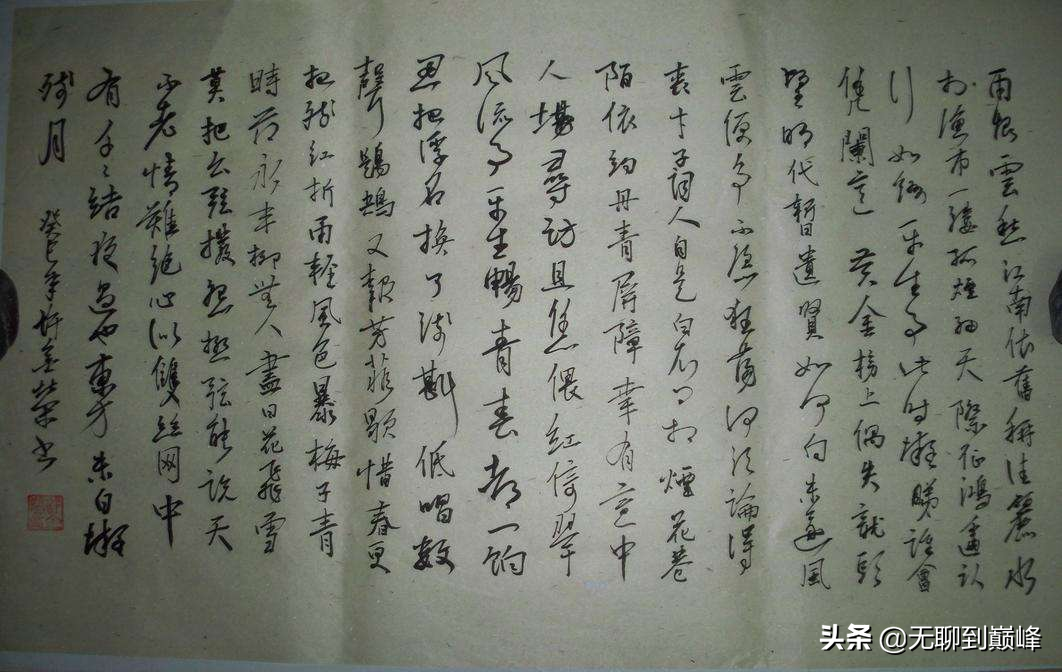 雨恨雲愁江南依舊稱佳麗水
村漁市一縷孤煙細天際征鴻遙認
行如綴平生事此時凝睇誰會
憑闌意 黃金榜上偶失龍頭
望明代暫遺賢如何向未遂風
雲便爭不恣狂蕩何須論得
喪才子詞人自是白衣卿相煙花巷
陌依約丹青屏障幸有意中
人堪尋訪且恁偎紅倚翠
風流事平生暢青春都一餉
忍把浮名換了淺斟低唱數
聲鶗鴂又報芳菲歇惜春更
把殘紅折雨輕風色暴梅子青
時節永丰柳無人盡日花飛雪
莫把幺弦撥怨極弦能說天
不老情難絕心似雙絲网中
有千々結夜過也東方未白凝
殘月 癸巳年 書
头条 @无聊到巅峰